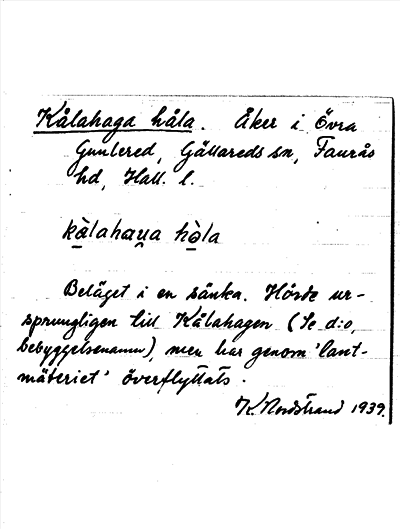 Kålahaga håla. Åker i Övra
Gunnered, Gällareds sn, Faurås
hd, Hall. l.
kålahaɥa hòla
Beläget i en sänka. Hörde ur-
sprungligen till Kålahagen (Se d:o,
bebyggelsenamn), men har genom 'lant-
mäteriet' överflyttats.
K. Nordstrand 1939.